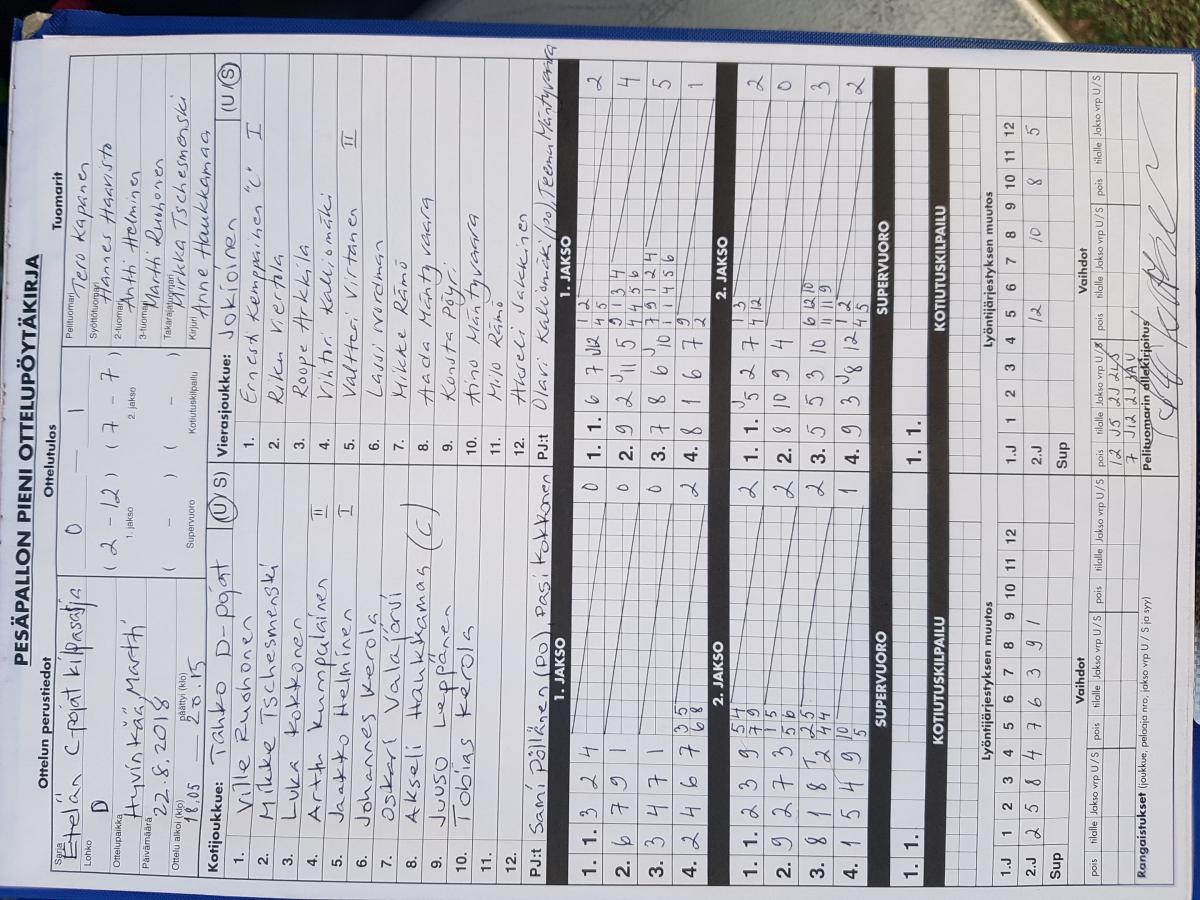 PESÄPALLON PIENI OTTELUPÖYTÄKIRJA
Ottelun perustiedot
Ottelutulos
Tuomarit
Sarja Etelän C pojat kilpasarja
Lohko D
Ottelupaikka Hyvinkää, Martti
Päivämäärä 22.8.2018
Ottelu alkoi (klo) 18.05
päättyi (klo) 20.15
0 — 1
( 2 - 12 ) ( 7 - 7 )
1. jakso 2. jakso
( - ) ( - )
Supervuoro Kotiutuskilpailu
Pelituomari Tero Kapanen
Syöttötuomari Hannes Haavisto
2-tuomari Antti Helminen
3-tuomari Martti Ruohonen
Takarajatuomari Pirkka Tschesmenski
Kirjuri Anne Haukkamaa
Kotijoukkue: Tahko D-pojat (U/S)
1. Ville Ruohonen
2. Mikke Tschesmenski
3. Luka Kokkonen
4. Arttu Kumpulainen II
5. Jaakko Helminen I
6. Johannes Kerola
7. Oskari Valajärvi
8. Akseli Haukkamaa (C)
9. Juuso Leppänen
10. Tobias Kerola
11.
12.
PJ:t Sami Pöllänen (PJ), Pasi Kokkonen
Vierasjoukkue: Jokioinen (U/S)
1. Ernesti Kemppainen "C" I
2. Riku Viertola
3. Roope Arkkila
4. Vihtori Kaliomäki
5. Valtteri Virtanen II
6. Lassi Nordman
7. Mikke Rämö
8. Aada Mäntyvaara
9. Konsta Pöyri
10. Aino Mäntyvaara
11. Milo Rämö
12. Akseli Jaakkoinen
PJ:t Olavi Kaliomäki (PJ), Teemu Mäntyvaara
1. JAKSO
1. 1. 3 2 4 0
2. 6 7 9 1 0
3. 3 4 7 1 0
4. 2 4 6 7 3 5 2
6 8
1. JAKSO
1. 1. 6 7 J12 1 2 2
4 5
2. 9 2 J11 5 9 1 3 4 4
4 4 5 6
3. 7 8 6 J10 7 9 1 2 4 5
1 1 4 5 6
4. 8 1 6 7 9 1
2
2. JAKSO
1. 1. 2 3 9 5 4 2
7 9
2. 9 2 7 3 1 5 2
5 6
3. 8 1 8 2 2 5 2
4 4
4. 1 5 4 9 10 1
5
2. JAKSO
1. 1. J5 2 7 1 3 2
4 12
2. 8 10 9 4 0
3. 5 5 3 10 6 12 10 3
11 11 9
4. 9 3 J8 12 1 2 2
4 5
SUPERVUORO
1. 1.
SUPERVUORO
1. 1.
KOTIUTUSKILPAILU
KOTIUTUSKILPAILU
Lyöntijärjestyksen muutos
1.J 1 2 3 4 5 6 7 8 9 10 11 12
2.J 2 5 8 4 7 6 3 9 1
Sup
Lyöntijärjestyksen muutos
1.J 1 2 3 4 5 6 7 8 9 10 11 12
2.J 12 10 8 5
Sup
Vaihdot
pois tilalle Jakso vrp U/S pois tilalle Jakso vrp U/S pois tilalle Jakso vrp U/S
Vaihdot
pois tilalle Jakso vrp U/S pois tilalle Jakso vrp U/S pois tilalle Jakso vrp U/S
12 J5 2J
7 J12 2J
Rangaistukset (joukkue, pelaaja nro, jakso vrp U / S ja syy)
Pelituomarin allekirjoitus